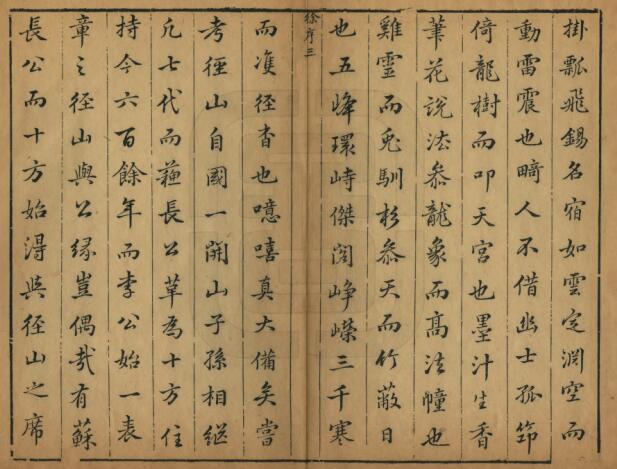 掛瓢飛錫名宿如雲定淵空而
動雷震也畸人不借幽士孤筇
倚龍樹而叩天宮也墨汁生香
筆花說法參龍象而高法幢也
雞靈而兎馴杉參天而竹蔽日
也五峰環峙傑閣崢嶸三千寒
徐序三
而淮徑杳也噫嘻真大備矣嘗
考徑山自國一開山子孫相繼
凢七代而蘓長公草為十方住
持今六百餘年而李公始一表
章之徑山與公緣豈偶哉有蘇
長公而十方始得與徑山之席